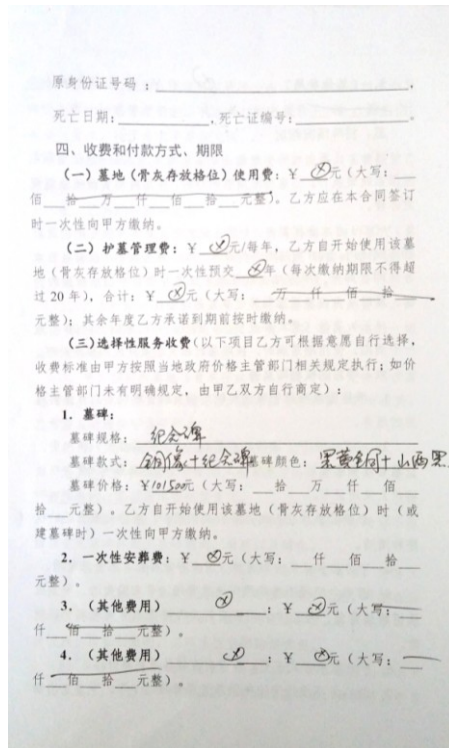 原身份证号码：____________________。
死亡日期：__________，死亡证编号：__________。
四、收费和付款方式、期限
（一）墓地（骨灰存放格位）使用费：￥ ⊗ 元（大写：__
佰__拾__万__仟__佰__拾__元整）。乙方应在本合同签订
时一次性向甲方缴纳。
（二）护墓管理费：￥ ⊗ 元/每年，乙方自开始使用该墓
地（骨灰存放格位）时一次性预交 ⊗ 年（每次缴纳期限不得超
过 20 年），合计：￥ ⊗ 元（大写：__万__仟__佰__拾__
元整）；其余年度乙方承诺到期前按时缴纳。
（三）选择性服务收费（以下项目乙方可根据意愿自行选择，
收费标准由甲方按照当地政府价格主管部门相关规定执行；如价
格主管部门未有明确规定，由甲乙双方自行商定）：
1. 墓碑：
墓碑规格：纪念碑
墓碑款式：铜像+纪念碑 墓碑颜色：黑黄铜+山西黑
墓碑价格：￥101500元（大写：__拾__万__仟__佰__
拾__元整）。乙方自开始使用该墓地（骨灰存放格位）时（或
建墓碑时）一次性向甲方缴纳。
2. 一次性安葬费：￥ ⊗ 元（大写：__仟__佰__拾__
元整）。
3. （其他费用） ⊗ ：￥ ⊗ 元（大写：__
仟__佰__拾__元整）。
4. （其他费用） ⊗ ：￥ ⊗ 元（大写：__
仟__佰__拾__元整）。